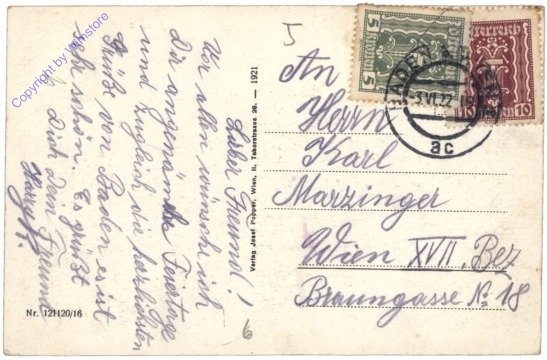 Copyright by Wijnstore
5
Lieber Freund!
Vor allen wünsche ich
Dir angenehme Feiertage
und zugleich die herzlichsten
Grüße von Baden es ist
sehr schön. Es grüßt
Dich Dein Freund
Harry
Nr. 121120/16
6
Verlag Josef Popper, Wien, II. Taborstrasse 36. — 1921
5 KRONEN 5
Österreich
10 10
BADEN
-3.VI.22
ac
An
Herrn
Karl
Marzinger
Wien XVII. Bez
Braungasse № 18